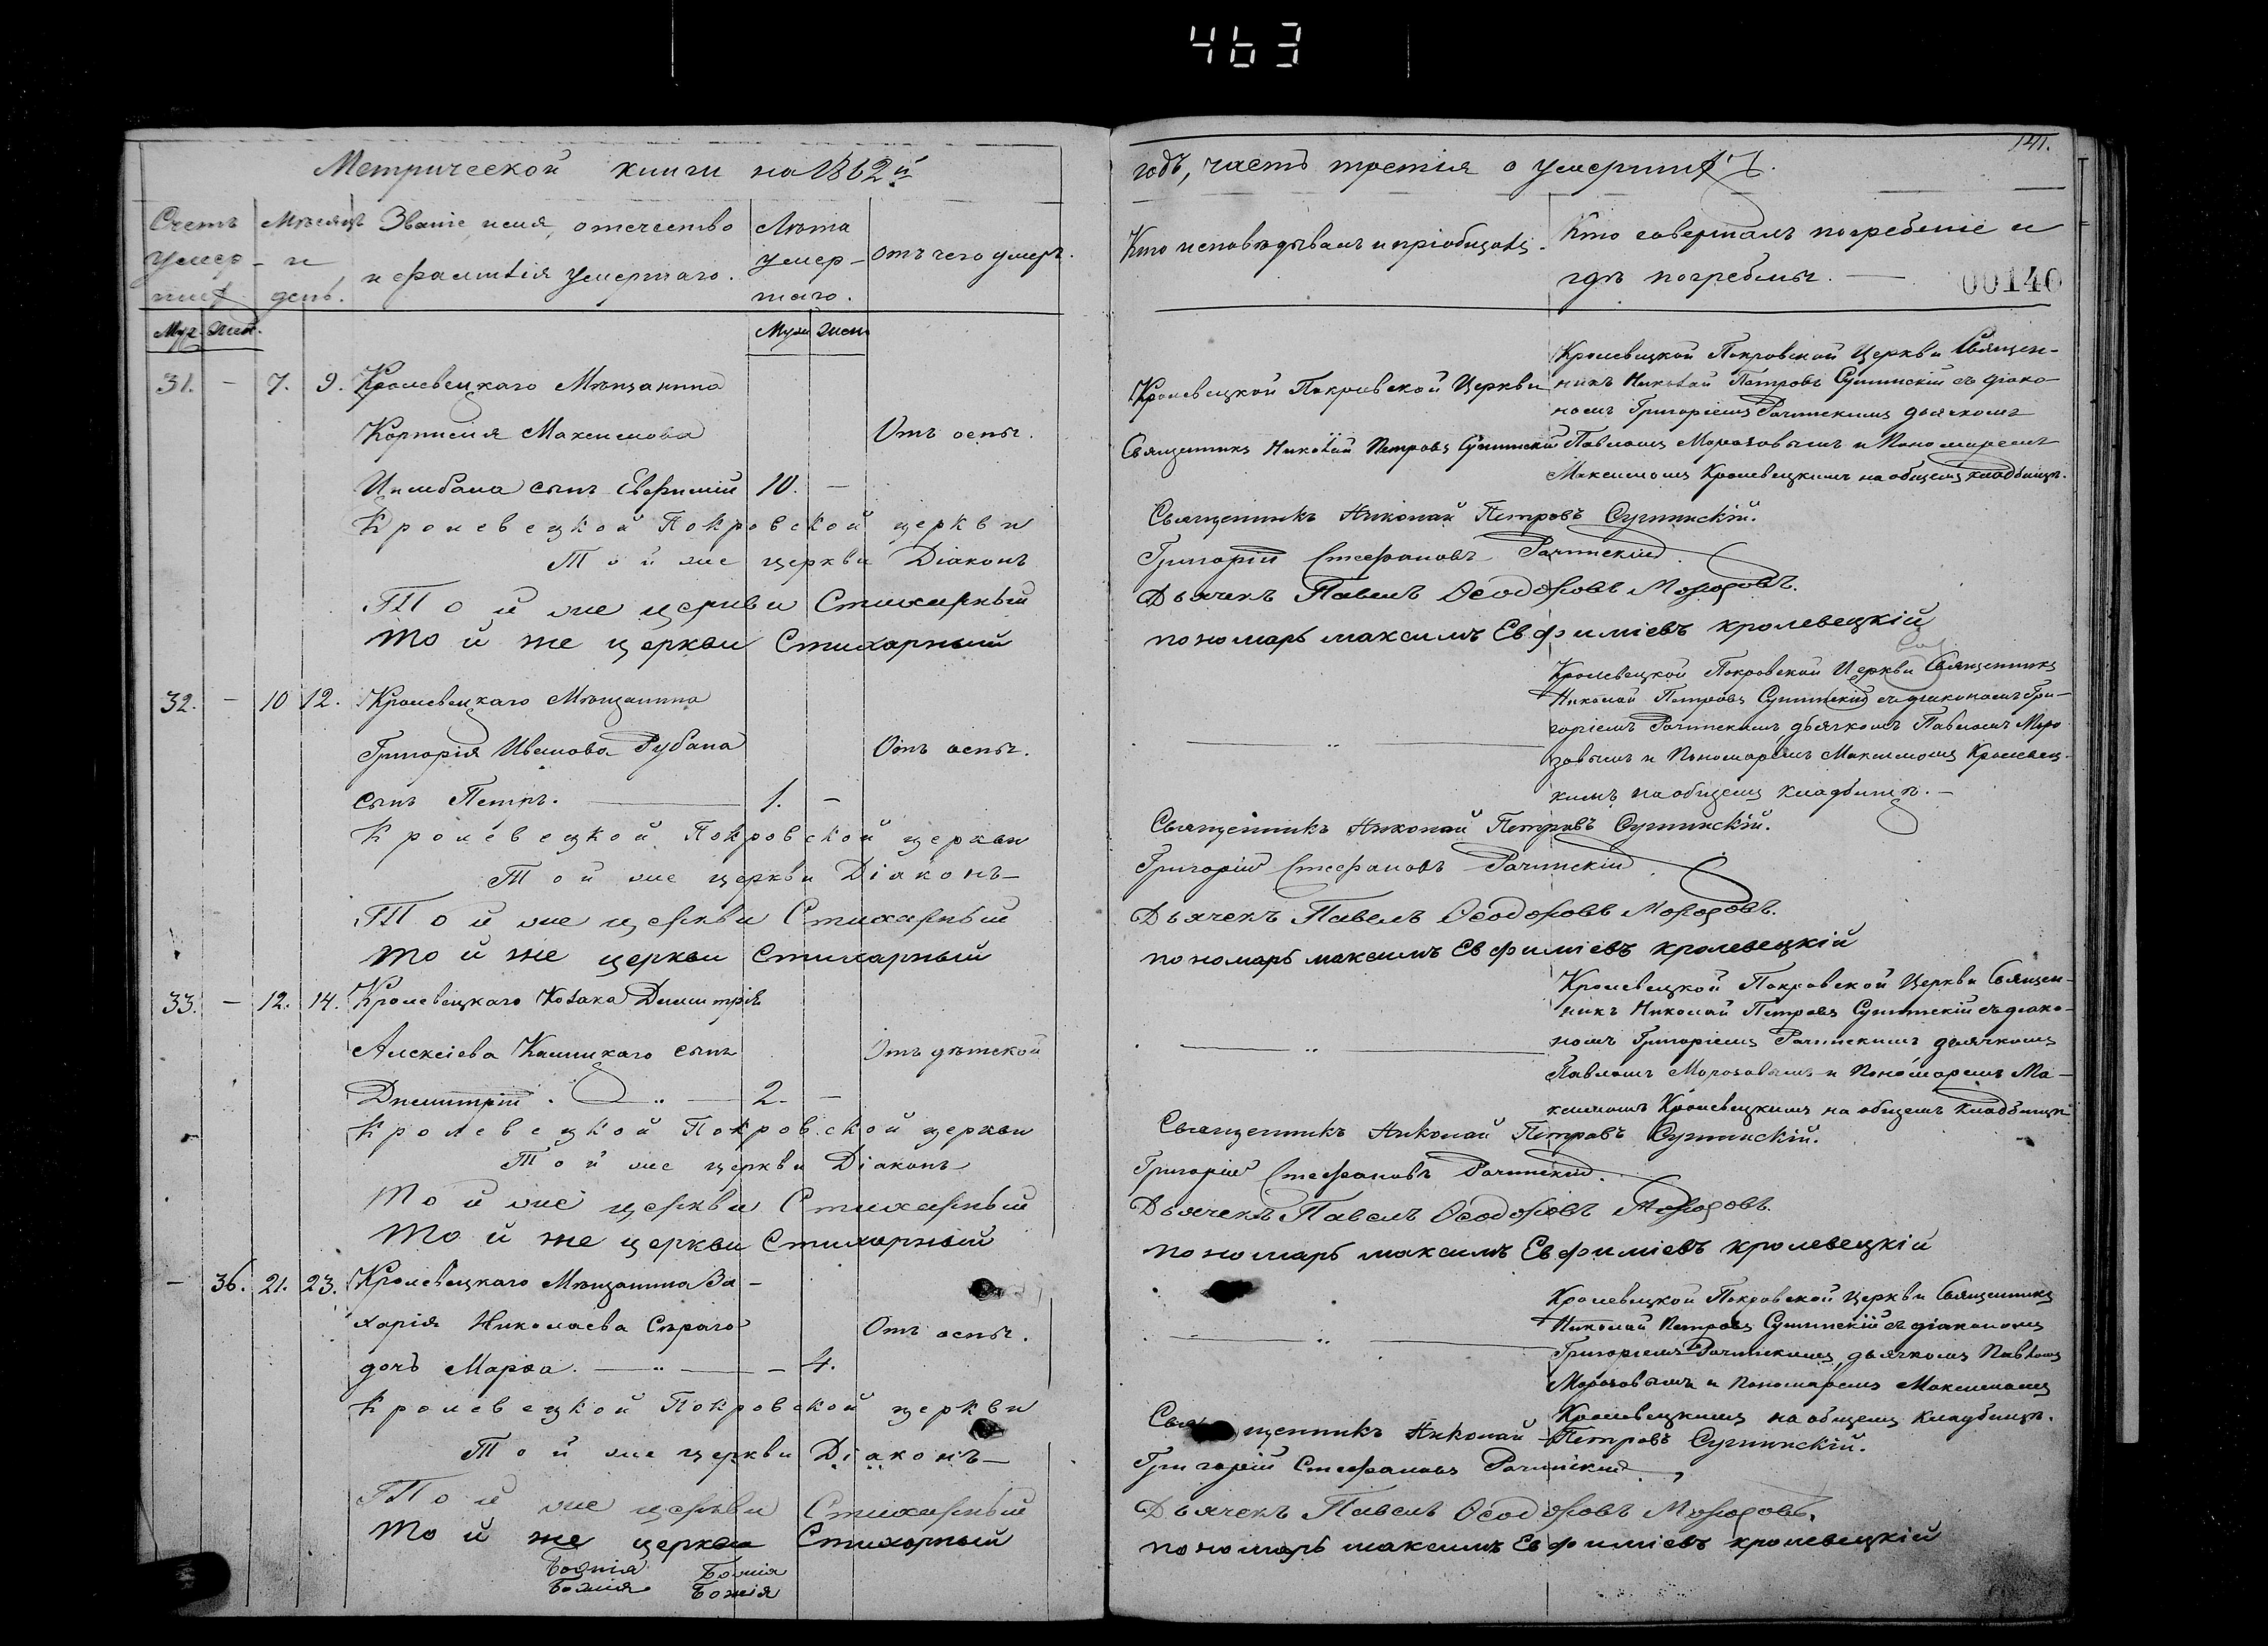 463
141.
Метрической книги на 1862й
годъ, часть третія о умершихъ.
Счетъ умер-шихъ
Мѣсяцъ и день.
Званіе, имя, отчество и фамилія умершаго.
Лѣта умер-шаго.
Отъ чего умеръ.
Кто исповѣдывалъ и пріобщалъ.
Кто совершалъ погребеніе и гдѣ погребены.
00140
Муж. Жен.
Муж Жен
31. – 7. 9. Кролевецкаго Мѣщанина
Максимова Отъ оспы.
сынъ Евфимій 10. –
Кролевецкой Покровской Церкви
Священникъ Николай Петровъ
Кролевецкой Покровской Церкви Священ-
никъ Николай Петровъ съ діако-
номъ Григоріемъ дьячкомъ
Павломъ Морозовымъ и Пономаремъ
Максимомъ Кролевецкимъ на общемъ кладбищѣ.
Кролевецкой Покровской церкви Священникъ Николай Петровъ
Той же церкви Діаконъ Григорій Стефановъ
Той же церкви Стихарный Дьячекъ Павелъ Ѳеодоровъ Морозовъ.
Той же церкви Стихарный пономарь максимъ Евфиміевъ кролевецкій
32. – 10 12. Кролевецкаго Мѣщанина
Григорія Иванова Рубана Отъ оспы.
сынъ Петръ. 1. –
Кролевецкой Покровской Церкви Священникъ
Николай Петровъ съ діакономъ Гри-
горіемъ дьячкомъ Павломъ Моро-
зовымъ и Пономаремъ Максимомъ Кролевец-
кимъ на общемъ кладбищѣ. –
Кролевецкой Покровской церкви Священникъ Николай Петровъ
Той же церкви Діаконъ Григорій Стефановъ
Той же церкви Стихарный Дьячекъ Павелъ Ѳеодоровъ Морозовъ.
Той же церкви Стихарный пономарь максимъ Евфиміевъ кролевецкій
33. – 12. 14. Кролевецкаго Козака Димитрія
Алексіева сынъ Отъ дѣтской
Димитрій. 2. –
Кролевецкой Покровской Церкви Священ-
никъ Николай Петровъ съ діако-
номъ Григоріемъ дьячкомъ
Павломъ Морозовымъ и Пономаремъ Ма-
ксимомъ Кролевецкимъ на общемъ кладбищѣ
Кролевецкой Покровской церкви Священникъ Николай Петровъ
Той же церкви Діаконъ Григорій Стефановъ
Той же церкви Стихарный Дьячекъ Павелъ Ѳеодоровъ Морозовъ.
Той же церкви Стихарный пономарь максимъ Евфиміевъ кролевецкій
– 36. 21. 23. Кролевецкаго Мѣщанина За-
харія Николаева Сѣраго Отъ оспы.
дочь Марѳа. – 4.
Кролевецкой Покровской Церкви Священникъ
Николай Петровъ съ діакономъ
Григоріемъ дьячкомъ Павломъ
Морозовымъ и Пономаремъ Максимомъ
Кролевецкимъ на общемъ кладбищѣ.
Кролевецкой Покровской церкви Священникъ Николай Петровъ
Той же церкви Діаконъ Григорій Стефановъ
Той же церкви Стихарный Дьячекъ Павелъ Ѳеодоровъ Морозовъ.
Той же церкви Стихарный пономарь максимъ Евфиміевъ кролевецкій
Божія Божія
Божія Божія